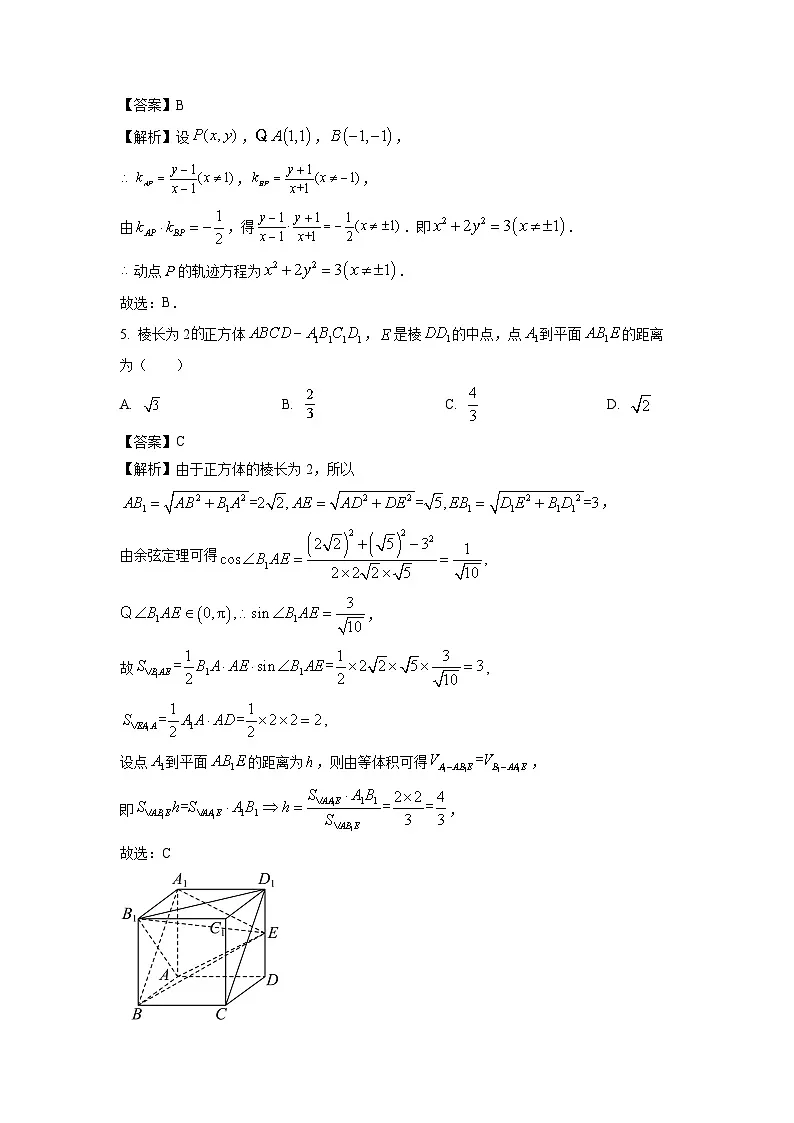 【答案】B
【解析】设 P(x, y) ，Q A(1,1) ， B(−1,−1) ，
∴ k_{AP} = \frac{y-1}{x-1}(x ≠ 1)，k_{BP} = \frac{y+1}{x+1}(x ≠ −1)，
由 k_{AP} · k_{BP} = −\frac{1}{2} ，得 \frac{y-1}{x-1} · \frac{y+1}{x+1} = −\frac{1}{2}(x ≠ ±1) . 即 x² + 2y² = 3(x ≠ ±1) .
∴ 动点 P 的轨迹方程为 x² + 2y² = 3(x ≠ ±1) .
故选：B.
5. 棱长为 2的正方体 ABCD − A₁B₁C₁D₁ ， E 是棱 DD₁ 的中点，点 A₁ 到平面 AB₁E 的距离
为（　　）
A. √3 B. \frac{2}{3} C. \frac{4}{3} D. √2
【答案】C
【解析】由于正方体的棱长为 2，所以
AB₁ = \sqrt{AB² + B₁A²} =2√2, AE = \sqrt{AD² + DE²} =√5, EB₁ = \sqrt{D₁E² + B₁D₁²} =3，
由余弦定理可得 cos∠B₁AE = \frac{(2√2)² + (√5)² − 3²}{2×2√2×√5} = \frac{1}{√10} ,
Q ∠B₁AE ∈ (0, π) ,∴ sin∠B₁AE = \frac{3}{√10}，
故 S_{√B₁AE} = \frac{1}{2} B₁A · AE · sin∠B₁AE = \frac{1}{2} × 2√2 × √5 × \frac{3}{√10} = 3 ,
S_{√EA₁A} = \frac{1}{2} A₁A · AD = \frac{1}{2} × 2 × 2 = 2 ,
设点 A₁ 到平面 AB₁E 的距离为 h ，则由等体积可得 V_{A₁−AB₁E} =V_{B₁−AA₁E} ，
即 S_{√AB₁E} h=S_{√AA₁E} · A₁B₁ ⇒ h = \frac{S_{√AA₁E} · A₁B₁}{S_{√AB₁E}} = \frac{2×2}{3} = \frac{4}{3} ，
故选：C
A₁ D₁
B₁
C₁ E
A D
B C